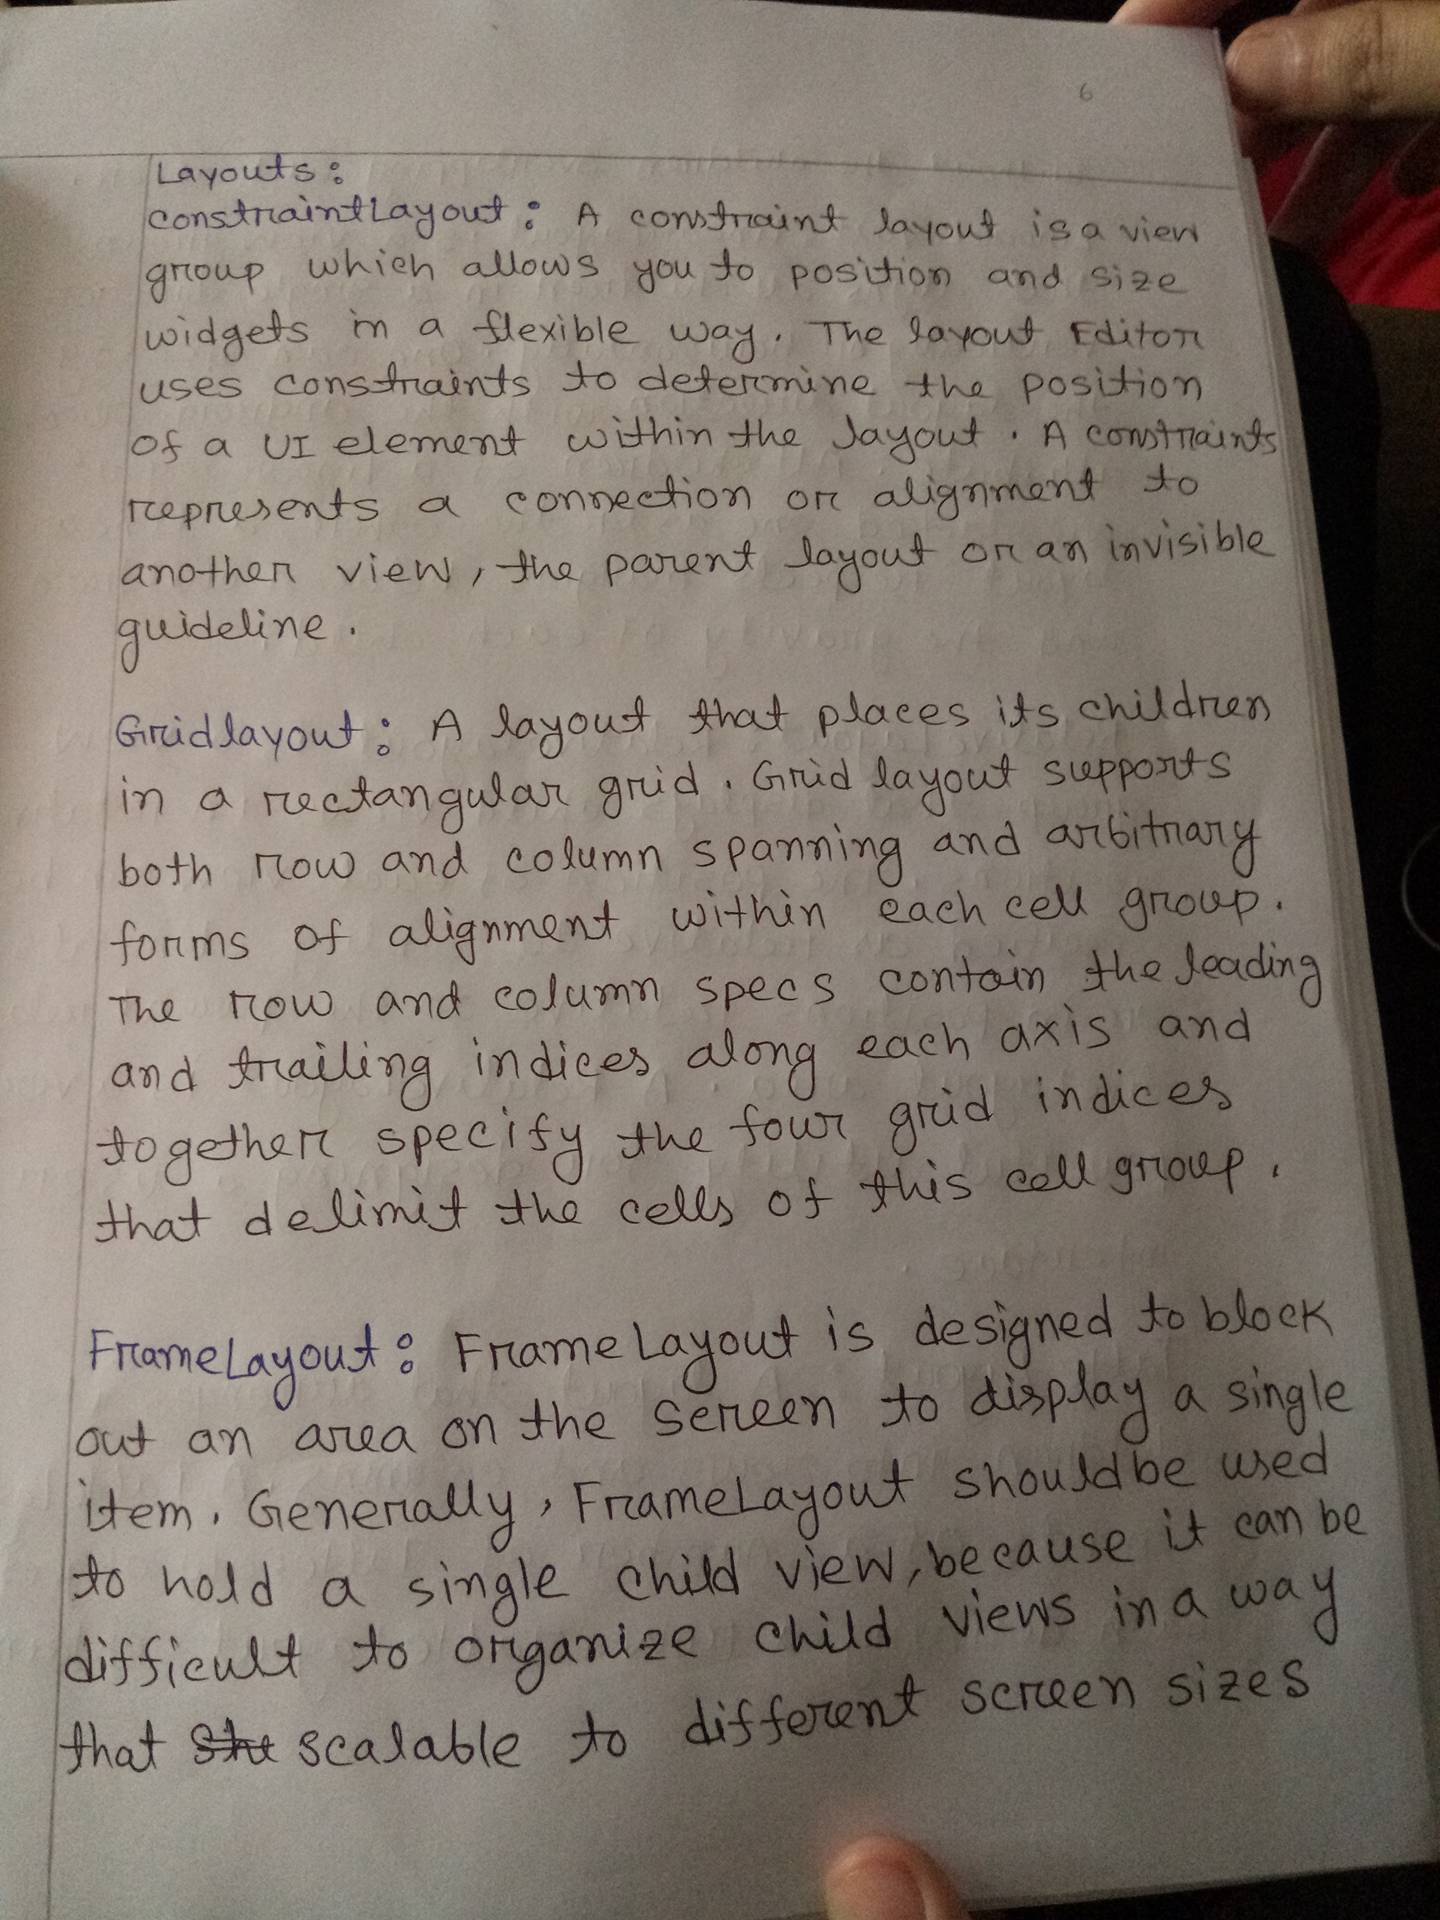 6
Layouts:
ConstraintLayout: A constraint layout is a view
group which allows you to position and size
widgets in a flexible way. The layout Editor
uses constraints to determine the position
of a UI element within the layout. A constraints
represents a connection or alignment to
another view, the parent layout or an invisible
guideline.
Gridlayout: A layout that places its children
in a rectangular grid. Grid layout supports
both row and column spanning and arbitrary
forms of alignment within each cell group.
The row and column specs contain the leading
and trailing indices along each axis and
together specify the four grid indices
that delimit the cells of this cell group.
FrameLayout: FrameLayout is designed to block
out an area on the screen to display a single
item. Generally, FrameLayout should be used
to hold a single child view, because it can be
difficult to organize child views in a way
that scalable to different screen sizes